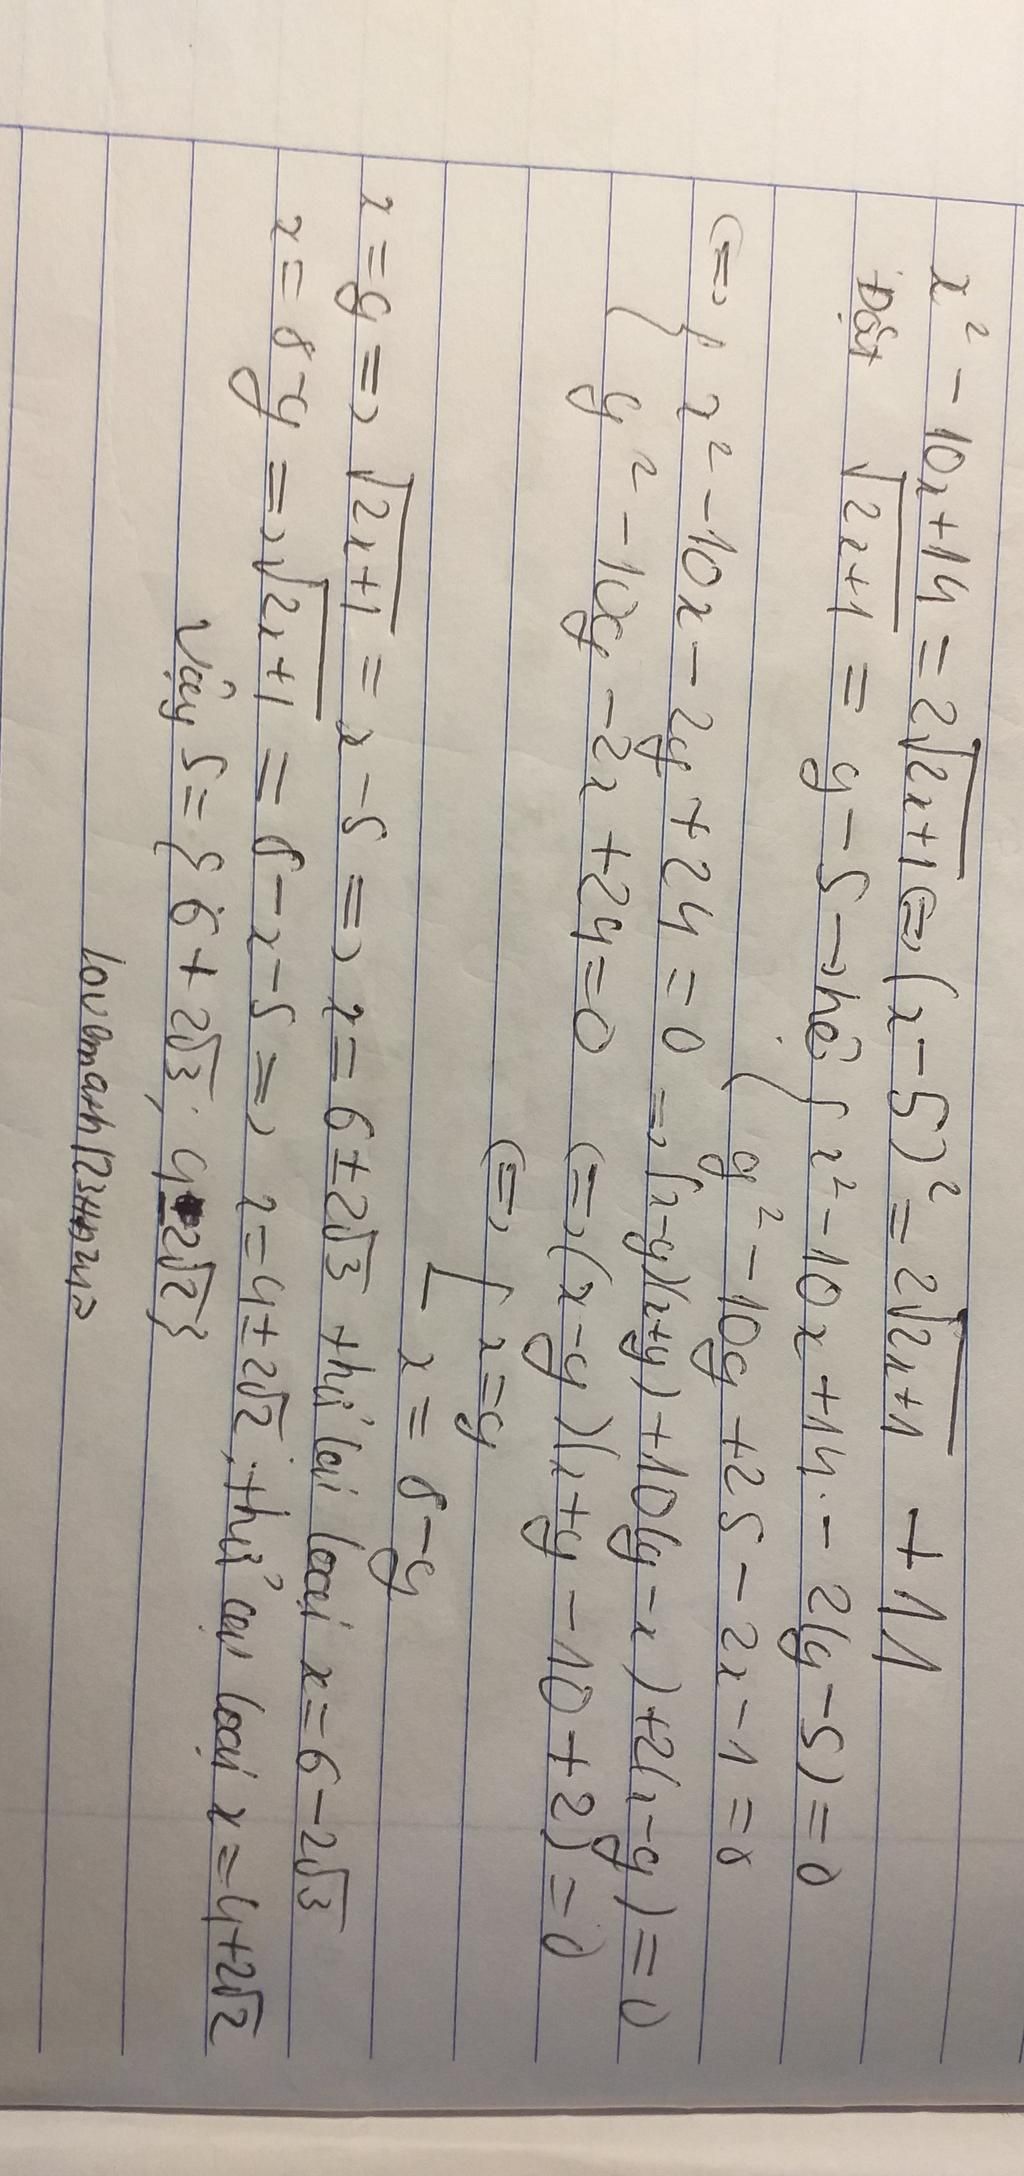 x² - 10x + 14 = 2√(2x+1) <=> (x-5)² = 2√(2x+1) + 11
Đặt √(2x+1) = y - 5 → hệ { x² - 10x + 14 - 2(y-5) = 0
{ y² - 10y + 25 - 2x - 1 = 0
<=> { x² - 10x - 2y + 24 = 0 => (x-y)(x+y) + 10(y-x) + 2(x-y) = 0
{ y² - 10y - 2x + 24 = 0 <=> (x-y)(x+y-10+2) = 0
<=> [ x = y
[ x = 8 - y
x = y => √(2x+1) = x - 5 => x = 6 ± 2√3 thử lại loại x = 6 - 2√3
x = 8 - y => √(2x+1) = 8 - x - 5 => x = 4 ± 2√2, thử lại loại x = 4 + 2√2
Vậy S = { 6 + 2√3; 4 - 2√2 }